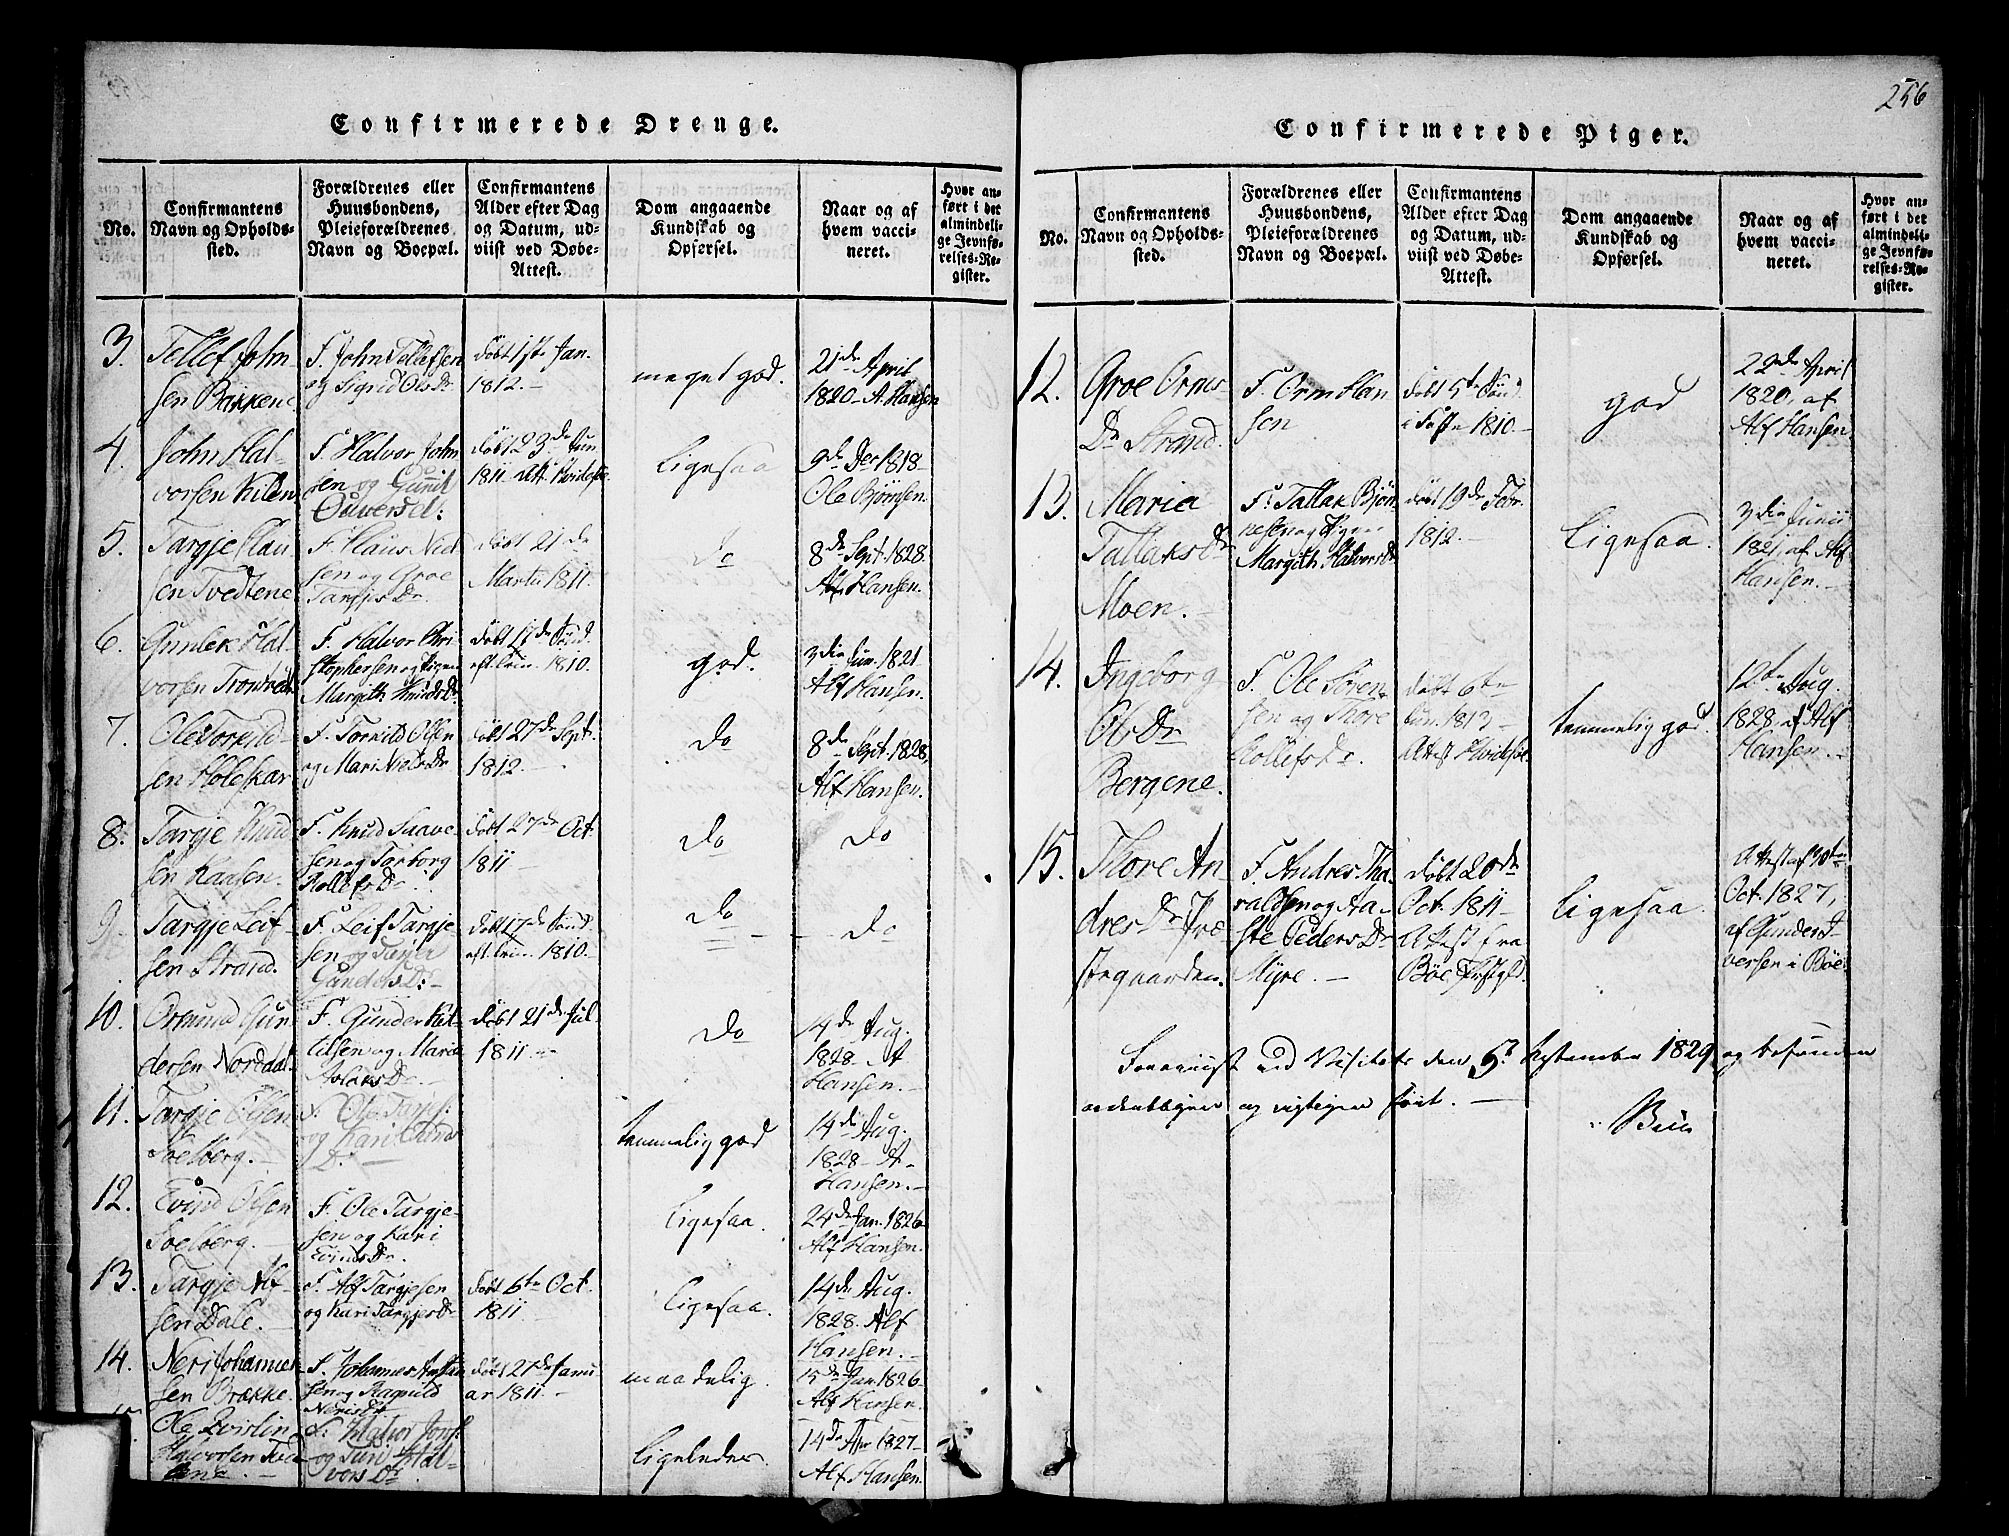 256
Confirmerede Drenge.
No.
Confirmantens
Navn og Opholds-
sted.
Forældrenes eller
Huusbondens,
Pleieforældrenes
Navn og Boepæl.
Confirmantens
Alder efter Dag
og Datum, ud-
viist ved Døbe-
Attest.
Dom angaaende
Kundskab og
Opførsel.
Naar og af
hvem vacci-
neret.
Hvor an-
ført i det
almindeli-
ge Jevnfø-
relses-Re-
gister.
3.
Tellef John-
sen Bakkene
F. John Tellefsen
og Sigrid Ols Dr
døbt 1ste Jan.
1812. -
meget god.
21de April
1820 - A. Hansen
4.
John Hal-
vorsen Kilen
F. Halvor John
sen og Gunil
døbt 23de Jun.
1811
Ligesaa
9de Dec 1818
Ole Bjørnsen.
5.
Targje Clau
sen Tvedtene
F. Claus Niel
sen og Groe
Targjes Dr.
døbt 21de
Martii 1811.
do
8de Sept. 1828.
Alf Hansen.
6.
Gunlek Hal
vorsen
F. Halvor Chri
stophersen og Pigen
Margith Knuds Dr
døbt 17de Sønd.
eft. Trin. 1810.
god.
3die Jun. 1821
Alf Hansen.
7.
Ole Torkild-
sen Holeskar
F. Torkild Olsen
og Mari Niels Dr
døbt 27de Sept.
1812. -
do
8de Sept. 1828,
Alf Hansen.
8.
Targje Knud
sen Kaasen.
F. Knud Saave-
sen og Torborg
Rollefs Dr.
døbt 27de Oct.
1811 -
do
do
9.
Targje Leif-
sen Strand.
F. Leif Targje-
sen og
Gunders Dr. -
døbt 17de Sønd.
eft. Trin. 1810. -
do
do
10.
Ormund Gun
dersen Norddal.
F. Gunder Ket-
tilsen og Maria
Aslaks Dr. -
døbt 21de Jul.
1811 -
do
14de Aug.
1828. A
Hansen. -
11.
Targje Olsen
Soelberg. -
F. Ole Targjes:
og Kari
Dr. -
temmelig god
14de Aug.
1828 - A.
Hansen. -
12.
Evind Olsen
Soelberg. -
F. Ole Targje-
sen og Kari
Evinds Dr.
Ligesaa.
24de Jan. 1826
Alf Hansen.
13.
Targje Alf-
sen Dale. -
F. Alf Targjesen
og Kari Targjes Dr
døbt 6te Oct.
1811
Ligesaa.
14de Aug.
1828. Alf
Hansen. -
14.
Neri Johannes
sen Brække.
F. Johannes
sen og Ragnild
Neris Dr
døbt 27de Janu
ar 1811. -
maadelig.
15de Jan 1826
Alf Hansen.
Ole
Halvorsen
F. Halvor
og Turi Hal-
vors Dr
Ligeledes.
14de Apr 1827
Alf Hansen
Confirmerede Piger.
No.
Confirmantens
Navn og Opholds-
sted.
Forældrenes eller
Huusbondens,
Pleieforældrenes
Navn og Boepæl.
Confirmantens
Alder efter Dag
og Datum, ud-
viist ved Døbe-
Attest.
Dom angaaende
Kundskab og
Opførsel.
Naar og af
hvem vacci-
neret.
Hvor an-
ført i det
almindeli-
ge Jevnfø-
relses-Re-
gister.
12.
Groe Orms-
Dr Strand.
F. Orm Han
sen
døbt 5te Sønd.
i Faste 1810. -
god
22de April
1820, af
Alf Hansen.
13.
Maria
Tallaks Dr
Moen. -
F. Tallak Bjørn
nesen og Pigen
Margith Halvors Dr
døbt 19de Febr
1812. -
Ligesaa.
3die Junii
1821, af Alf
Hansen. -
14.
Ingeborg
Ols Dr
Bergene.
F. Ole Søren
sen og Thore
Rollefs Dr.
døbt 6te
Jun. 1813 -
Attest Hvidesøe.
temmelig god.
12te Aug.
1828, af Alf
Hansen. -
15.
Thore An
dres Dr Præ
stegaarden.
F. Andres Tha-
raldsen og Aa-
ste Peders Dr
Myre. -
døbt 20de
Oct. 1811 -
Attest fra
Bøe Præstegd.
Ligesaa.
Attest af 30te
Oct. 1827,
af Gunder I-
versen i Bøe.
Foreviist ved Visitats den 5t September 1829 og befunden
ordentligen og rigtigen ført. -